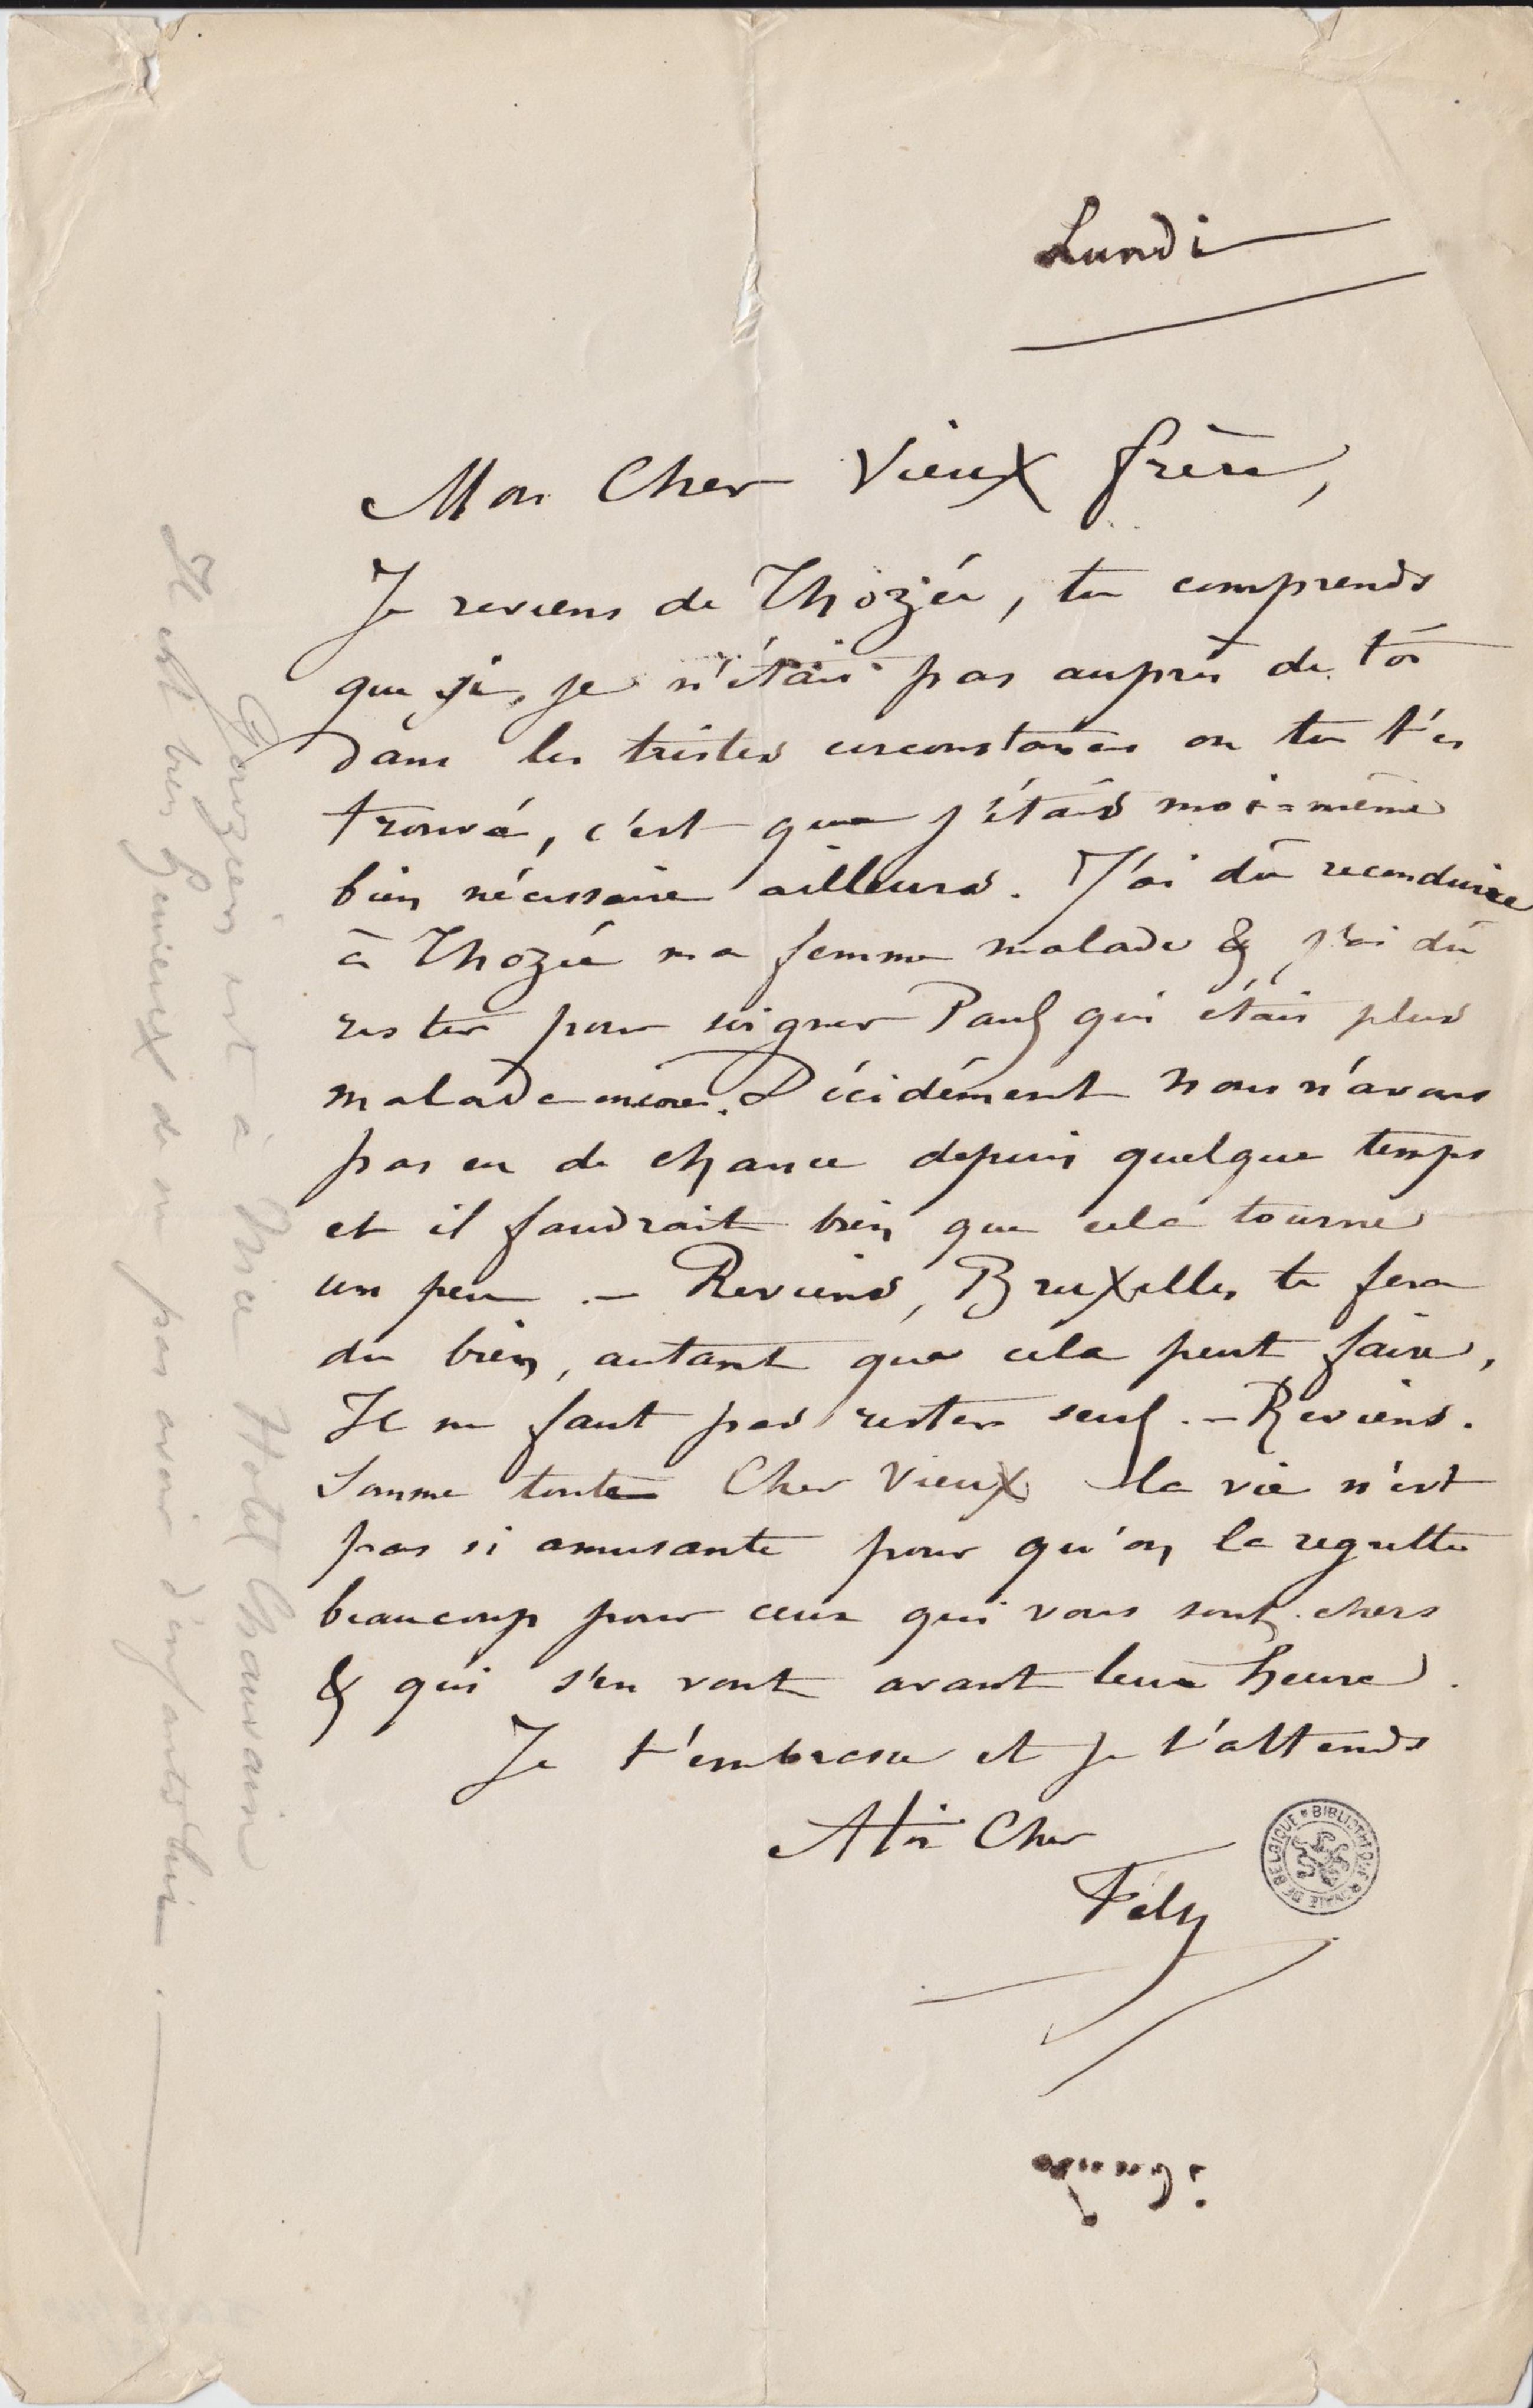 Lundi
Mon Cher Vieux frère,
Je reviens de Thozée, tu comprends
que si, je n'étais pas auprès de toi
dans les tristes circonstances ou tu t'es
trouvé, c'est que j'étais moi-même
bien nécessaire ailleurs. J'ai dû reconduire
à Thozée ma femme malade & j'ai dû
rester pour soigner Paul qui était plus
malade encore. Décidément nous n'avons
pas eu de chance depuis quelque temps
et il faudrait bien que cela tourne
un peu. – Reviens, Bruxelles te fera
du bien, autant que cela peut faire,
Il ne faut pas rester seul. – Reviens.
Somme toute Cher Vieux la vie n'est
pas si amusante pour qu'on la regrette
beaucoup pour ceux qui vous sont chers
& qui s'en vont avant leur heure.
Je t'embrasse et je t'attends
A toi Cher
Fély
BIBLIOTHEQUE ROYALE DE BELGIQUE
Lundi
est à Nice Hotel Chauvain
Il est bien heureux de ne pas avoir d'enfants lui.